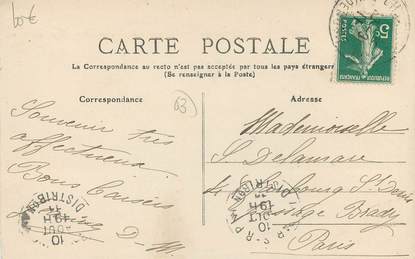 10€
CARTE POSTALE
La Correspondance au recto n'est pas acceptée par tous les pays étrangers
(Se renseigner à la Poste)
Correspondance
Adresse
5c
POSTES
REPUBLIQUE FRANÇAISE
63
Souvenir très
affectueux
Bons Baisers
D-M
Mademoiselle
S Delamare
Faubourg St Denis
Passage Brady
Paris
DISTRIBUTION
19H
10
AOUT
11
DISTRIBUTION